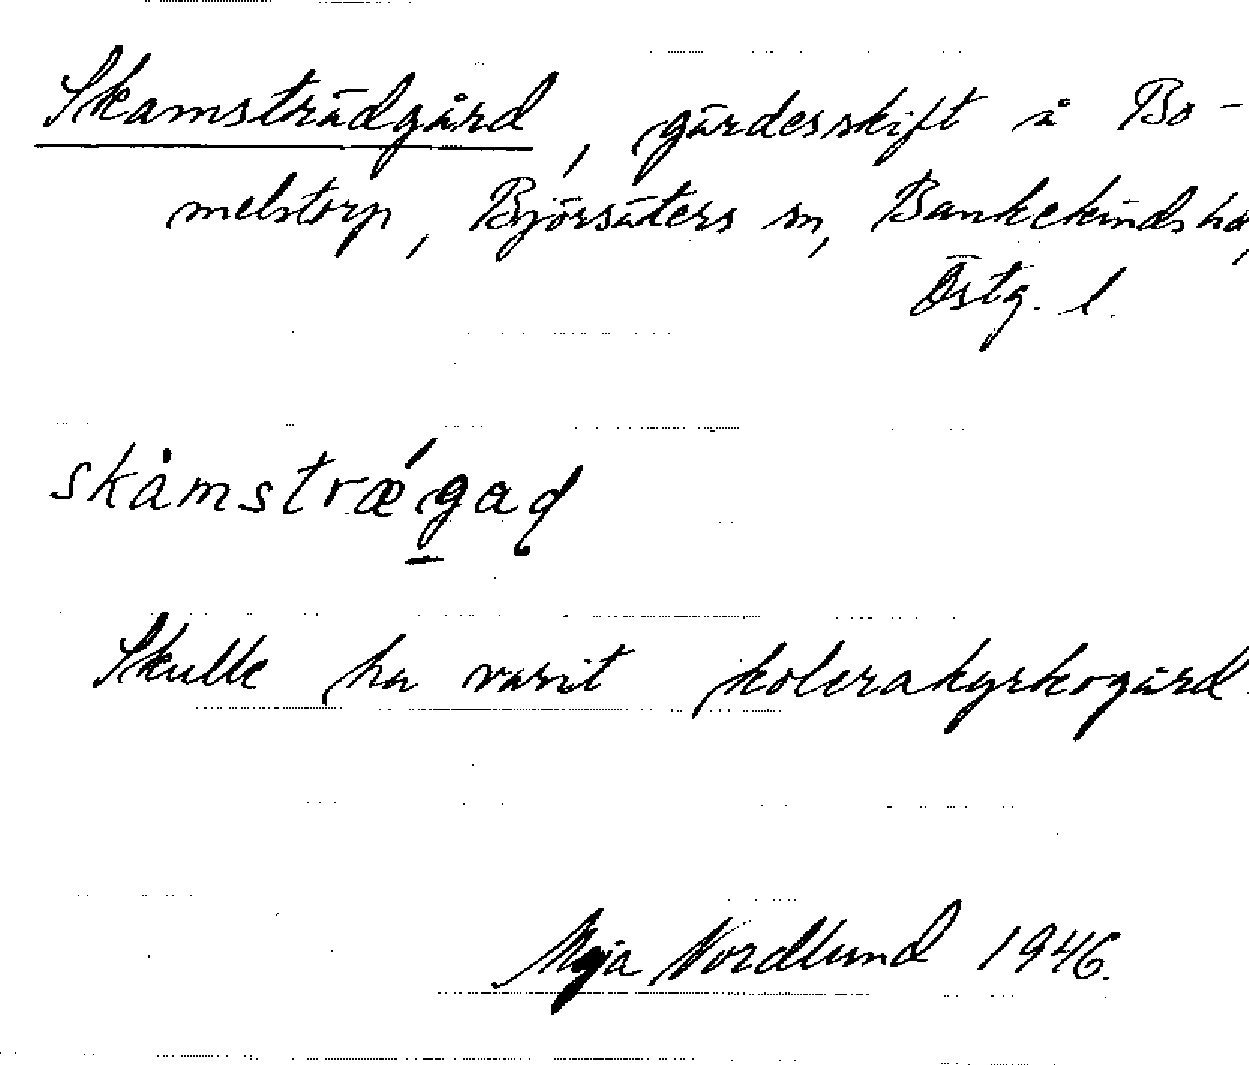 Skamsträdgård, gärdesskift å Bo-
melstorp, Björsäters sn, Bankekinds hd,
Östg. l.
skåmstræ´gaḍ
Skulle ha varit kolerakyrkogård.
Maja Nordlund 1946.